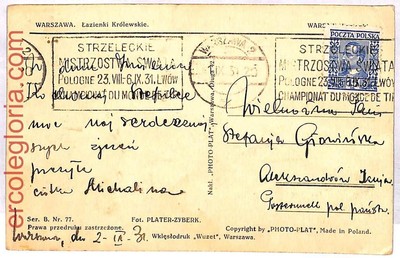 WARSZAWA. Łazienki Królewskie.
STRZELECKIE
MISTRZOSTWA ŚWIATA
POLOGNE 23.VIII-6.IX.31. LWÓW
CHAMPIONAT DU MONDE DE TIR
WARSZAWA 2
STRZELECKIE
MISTRZOSTWA ŚWIATA
POLOGNE 23.VIII-6.IX.31. LWÓW
CHAMPIONAT DU MONDE DE TIR
POCZTA POLSKA
W dniu Imienin
kochanej Stefci
moc naj serdeczniej
szych życzeń
przesyła
Michalina
Wielmożna Pani
Stefanja
Aleksandrów
Nakł. „PHOTO-PLAT"
Ser. B. Nr. 77.
Fot. PLATER-ZYBERK.
Prawa przedruku zastrzeżone.
Wklęsłodruk „Wuzet", Warszawa.
Copyright by „PHOTO-PLAT", Made in Poland.
Warszawa, dn 2-IX-31
ercolegloria.com